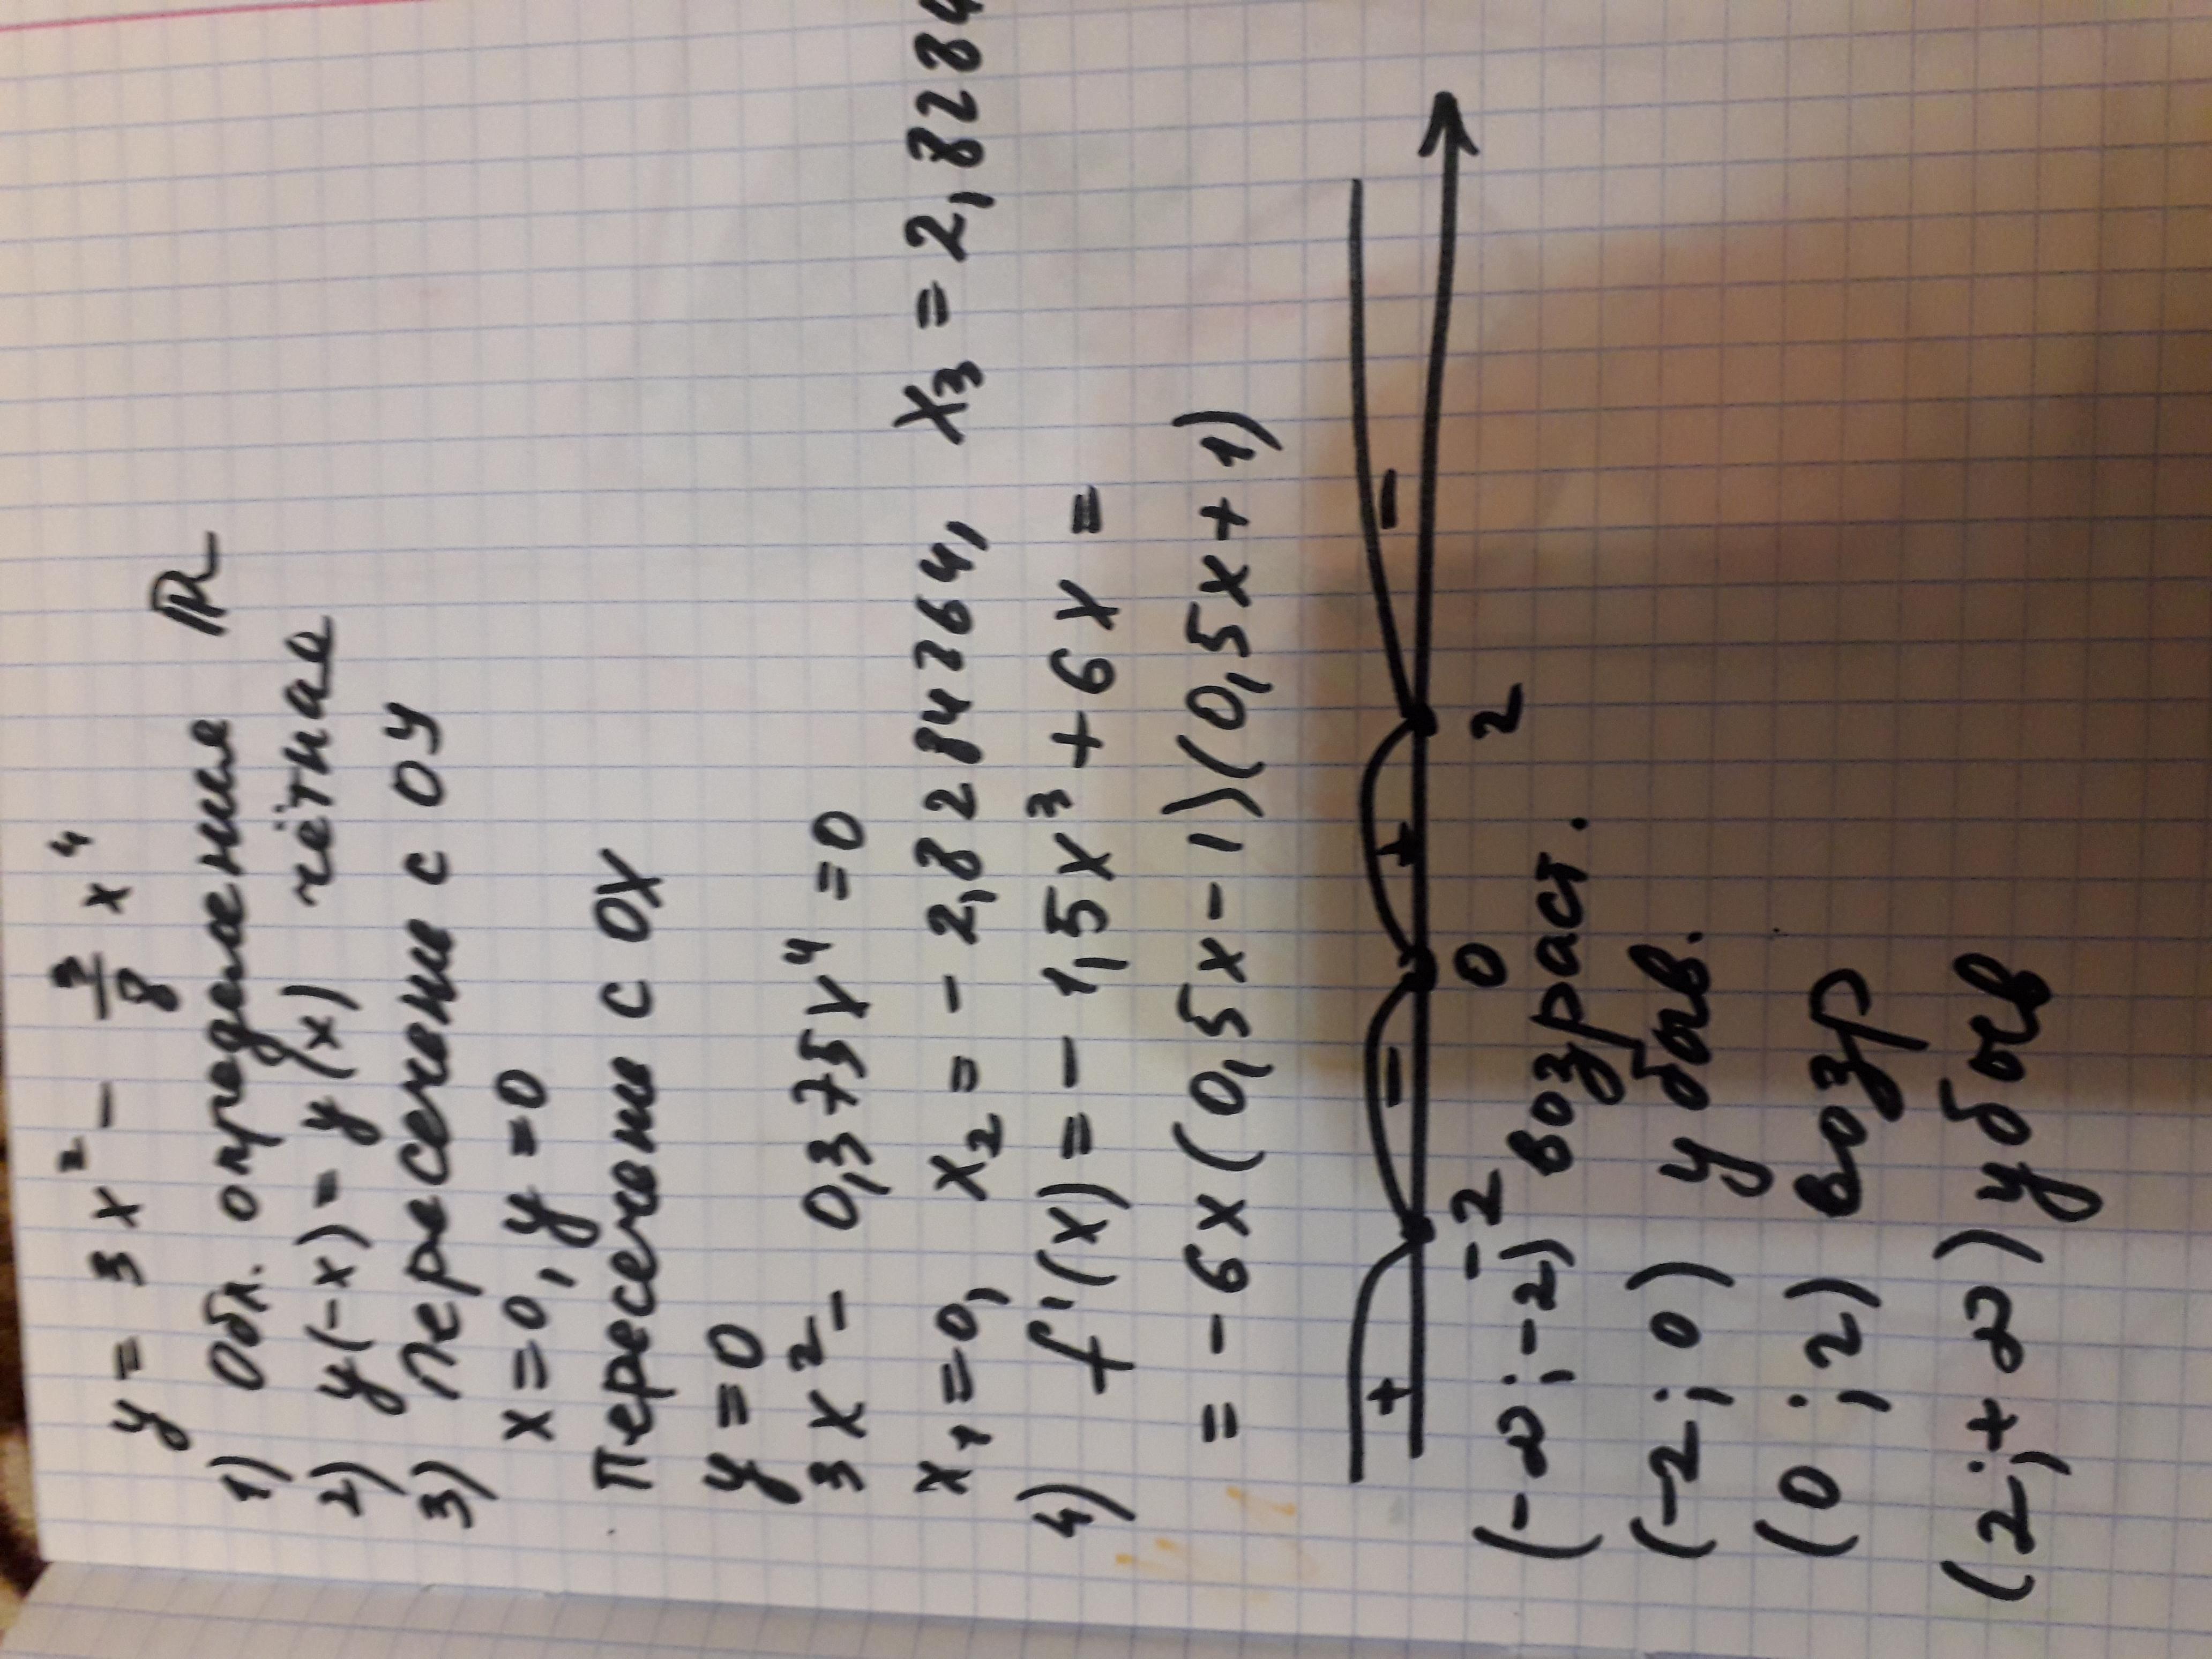 y = 3x² - 3/8 x⁴
1) Обл. определения ℝ
2) y(-x) = y(x) чётная
3) Пересечени с ОУ
x=0, y=0
Пересечени с ОХ
y=0
3x² - 0,375x⁴ = 0
x₁=0, x₂ = - 2,8284264, x₃ = 2,8284
4) f'(x) = - 1,5x³ + 6x =
= - 6x (0,5x - 1)(0,5x + 1)
+ - + -
-2 0 2
(-∞; -2) возраст.
(-2; 0) убыв.
(0; 2) возр
(2; +∞) убыв